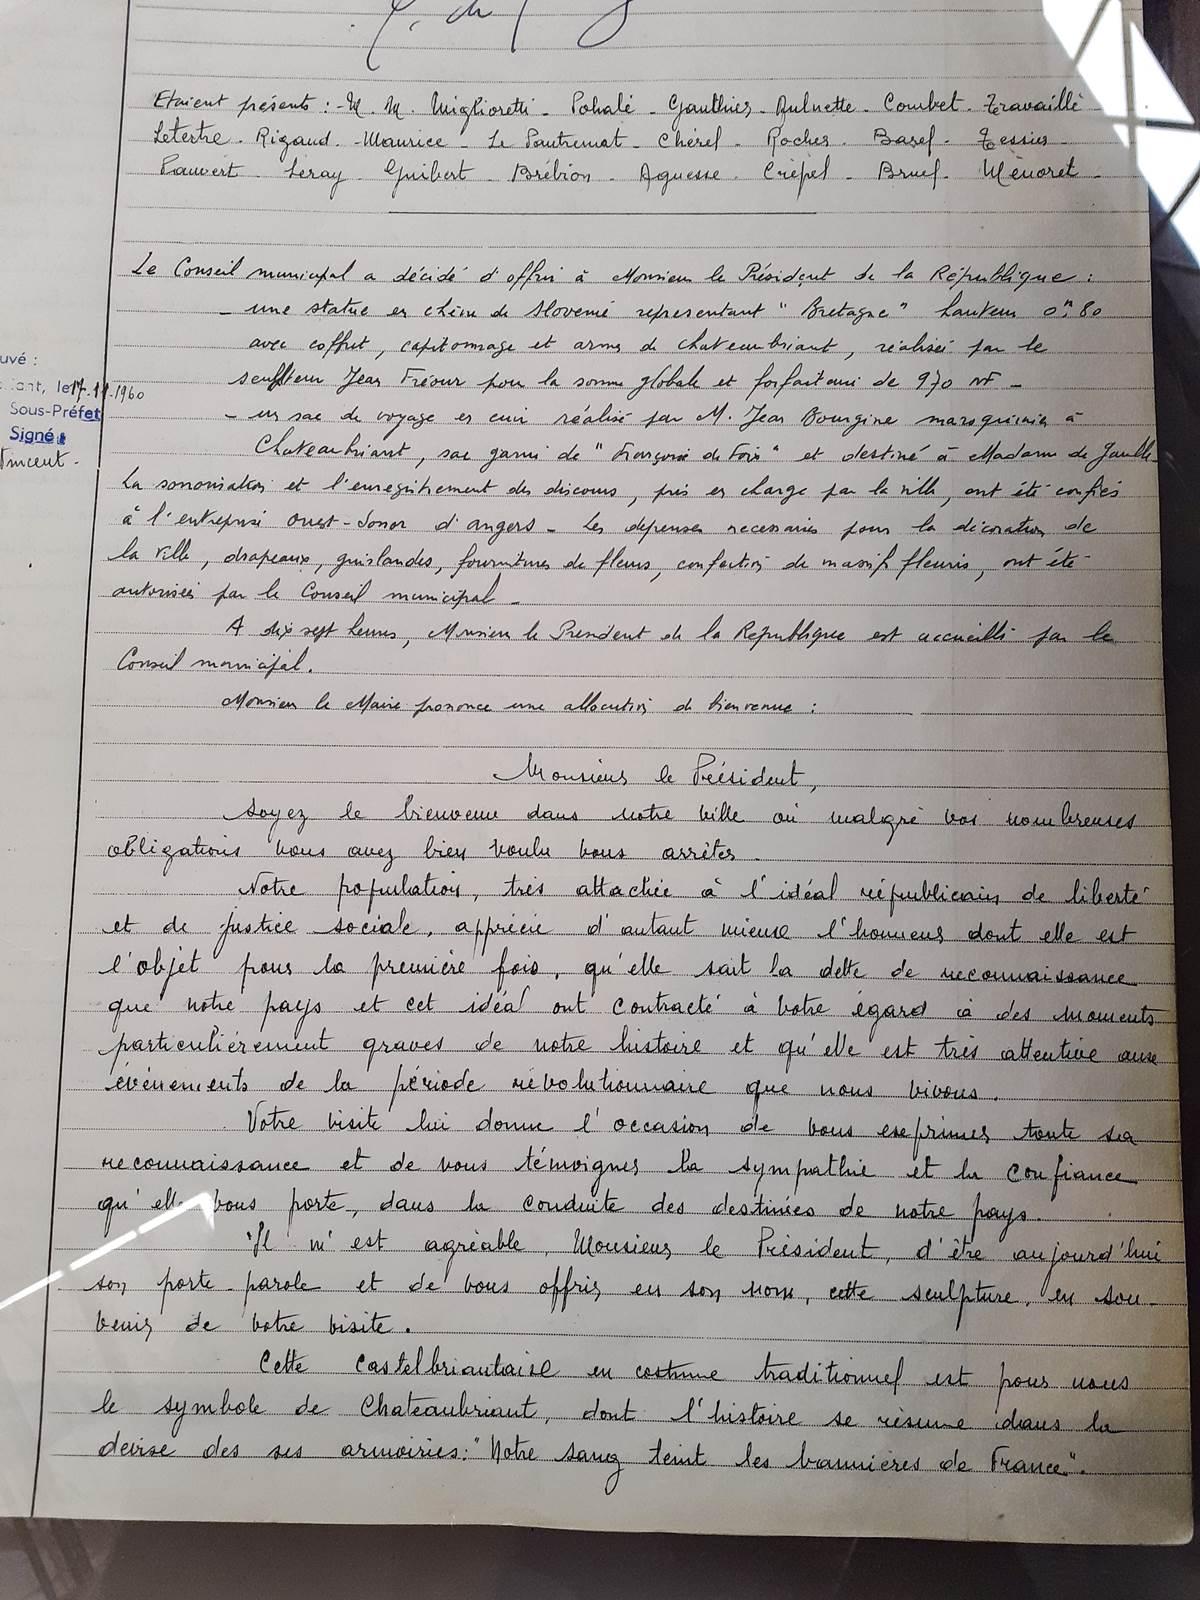 Etaient présents : - M. M. Miglioretti - Pohalé - Gauthier - Aulnette - Combet - Travaillé
Letertre - Rigaud - Maurice - Le Pautremat - Chérel - Rocher - Baref - Tessier -
Pauvert - Leray - Guibert - Brébion - Aguesse - Crépel - Bruel - Ménoret -
Le Conseil municipal a décidé d'offrir à Monsieur le Président de la République :
- une statue en chêne de Slovenie représentant "Bretagne" hauteur 0m80
avec coffret, capitonnage et armes de chateaubriant, réalisée par le
sculpteur Jean Fréour pour la somme globale et forfaitaire de 970 NF -
- un sac de voyage en cuir réalisé par M. Jean Bourgine maroquinier à
Chateaubriant, sac garni de "Françoise de Foix" et destiné à Madame de Gaulle
La sonorisation et l'enregistrement des discours, pris en charge par la ville, ont été confiés
à l'entreprise Ouest-Sonor d'angers - Les dépenses necessaires pour la décoration de
la ville, drapeaux, guirlandes, fournitures de fleurs, confection de massifs fleuris, ont été
autorisées par le Conseil municipal -
A dix sept heures, Monsieur le President de la République est accueilli par le
Conseil municipal.
Monsieur le Maire prononce une allocution de bienvenue :
uvé :
iant, le 17.11.1960
Sous-Préfet
Signé :
Vincent -
Monsieur le Président,
Soyez le bienvenu dans notre ville où malgré vos nombreuses
obligations vous avez bien voulu vous arrêter.
Notre population, très attachée à l'idéal républicain de liberté
et de justice sociale, apprécie d'autant mieux l'honneur dont elle est
l'objet pour la première fois, qu'elle sait la dette de reconnaissance
que notre pays et cet idéal ont contracté à votre égard à des moments
particulièrement graves de notre histoire et qu'elle est très attentive aux
événements de la période révolutionnaire que nous vivons.
Votre visite lui donne l'occasion de vous exprimer toute sa
reconnaissance et de vous témoigner la sympathie et la confiance
qu'elle vous porte, dans la conduite des destinées de notre pays.
Il m'est agréable, Monsieur le Président, d'être aujourd'hui
son porte-parole et de vous offrir en son nom, cette sculpture, en sou-
venir de votre visite.
Cette castelbriantaise en costume traditionnel est pour nous
le symbole de Chateaubriant, dont l'histoire se résume dans la
devise des ses armoiries : "Notre sang teint les bannières de France".